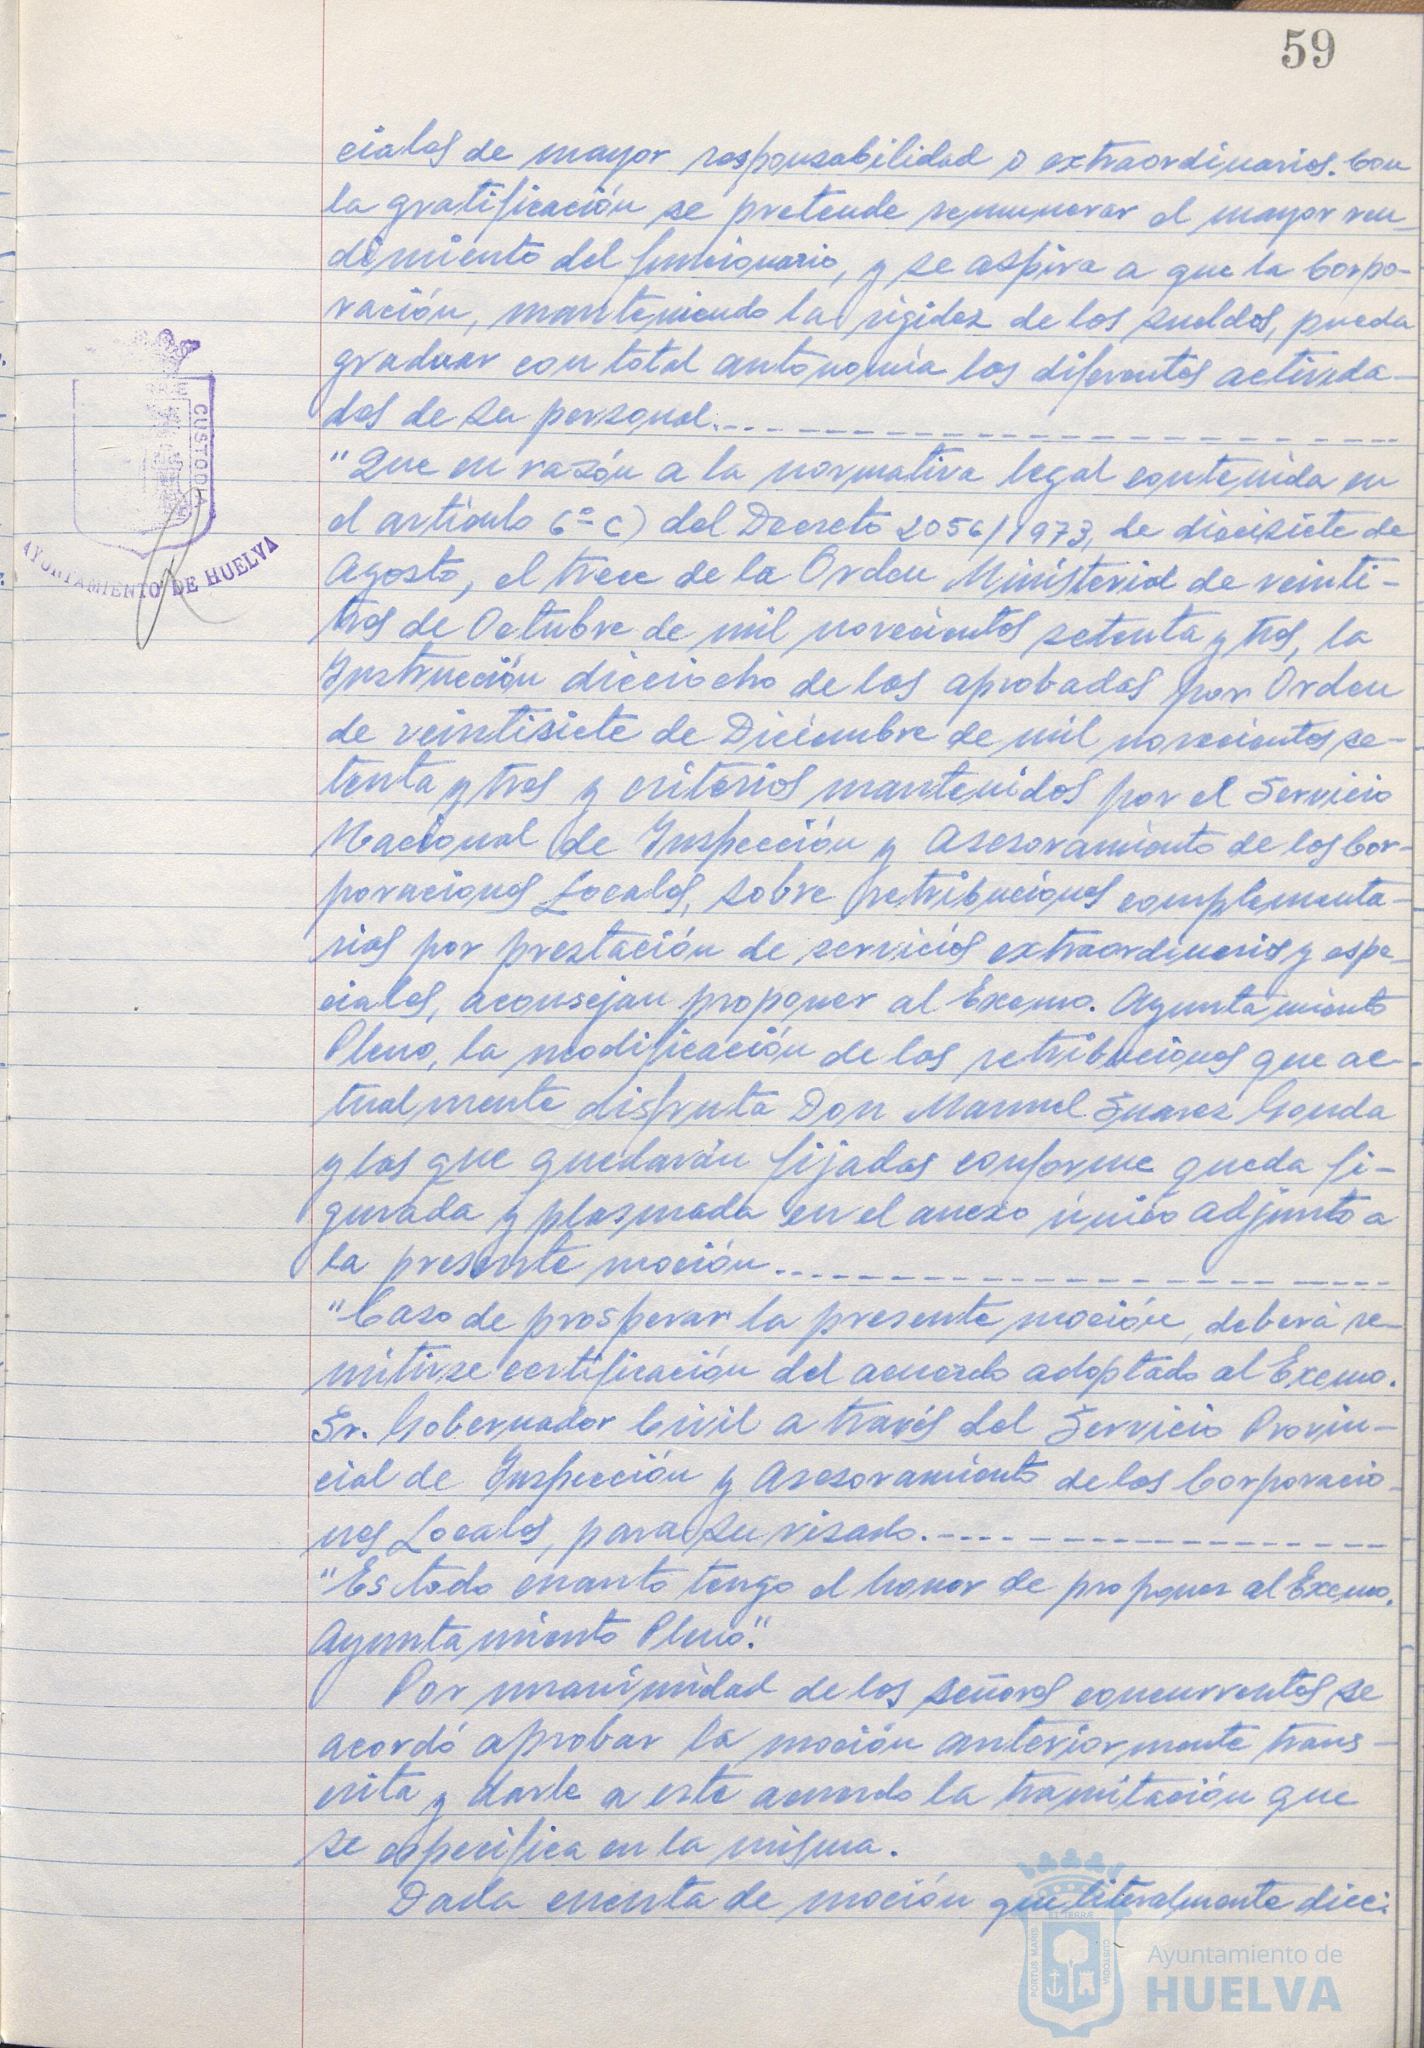 59
ciales de mayor responsabilidad o extraordinarios. Con
la gratificación se pretende remunerar el mayor ren-
dimiento del funcionario, y se aspira a que la Corpo-
ración, manteniendo la rigidez de los sueldos, pueda
graduar con total autonomía las diferentes activida-
des de su personal.
"Que en razón a la normativa legal contenida en
el artículo 6º C) del Decreto 2056/1973, de diecisiete de
Agosto, el trece de la Orden Ministerial de veinti-
trés de Octubre de mil novecientos setenta y tres, la
Instrucción dieciocho de las aprobadas por Orden
de veintisiete de Diciembre de mil novecientos se-
tenta y tres y criterios mantenidos por el Servicio
Nacional de Inspección y Asesoramiento de las Cor-
poraciones Locales, sobre retribuciones complementa-
rias por prestación de servicios extraordinarios y espe-
ciales, aconsejan proponer al Excmo. Ayuntamiento
Pleno, la modificación de las retribuciones que ac-
tualmente disfruta Don Manuel Suarez
y las que quedarán fijadas conforme queda fi-
gurada y plasmada en el anexo único adjunto a
la presente moción.
"Caso de prosperar la presente moción, deberá re-
mitirse certificación del acuerdo adoptado al Excmo.
Sr. Gobernador Civil a través del Servicio Provin-
cial de Inspección y Asesoramiento de las Corporacio-
nes Locales, para su visado.
"Es todo cuanto tengo el honor de proponer al Excmo.
Ayuntamiento Pleno."
Por unanimidad de los señores concurrentes se
acordó aprobar la moción anteriormente trans-
crita y darle a este acuerdo la tramitación que
se especifica en la misma.
Dada cuenta de moción que literalmente dice:
CUSTODIA
AYUNTAMIENTO DE HUELVA
PORTUS MARIS
ET TERRÆ
CUSTODIA
Ayuntamiento de
HUELVA